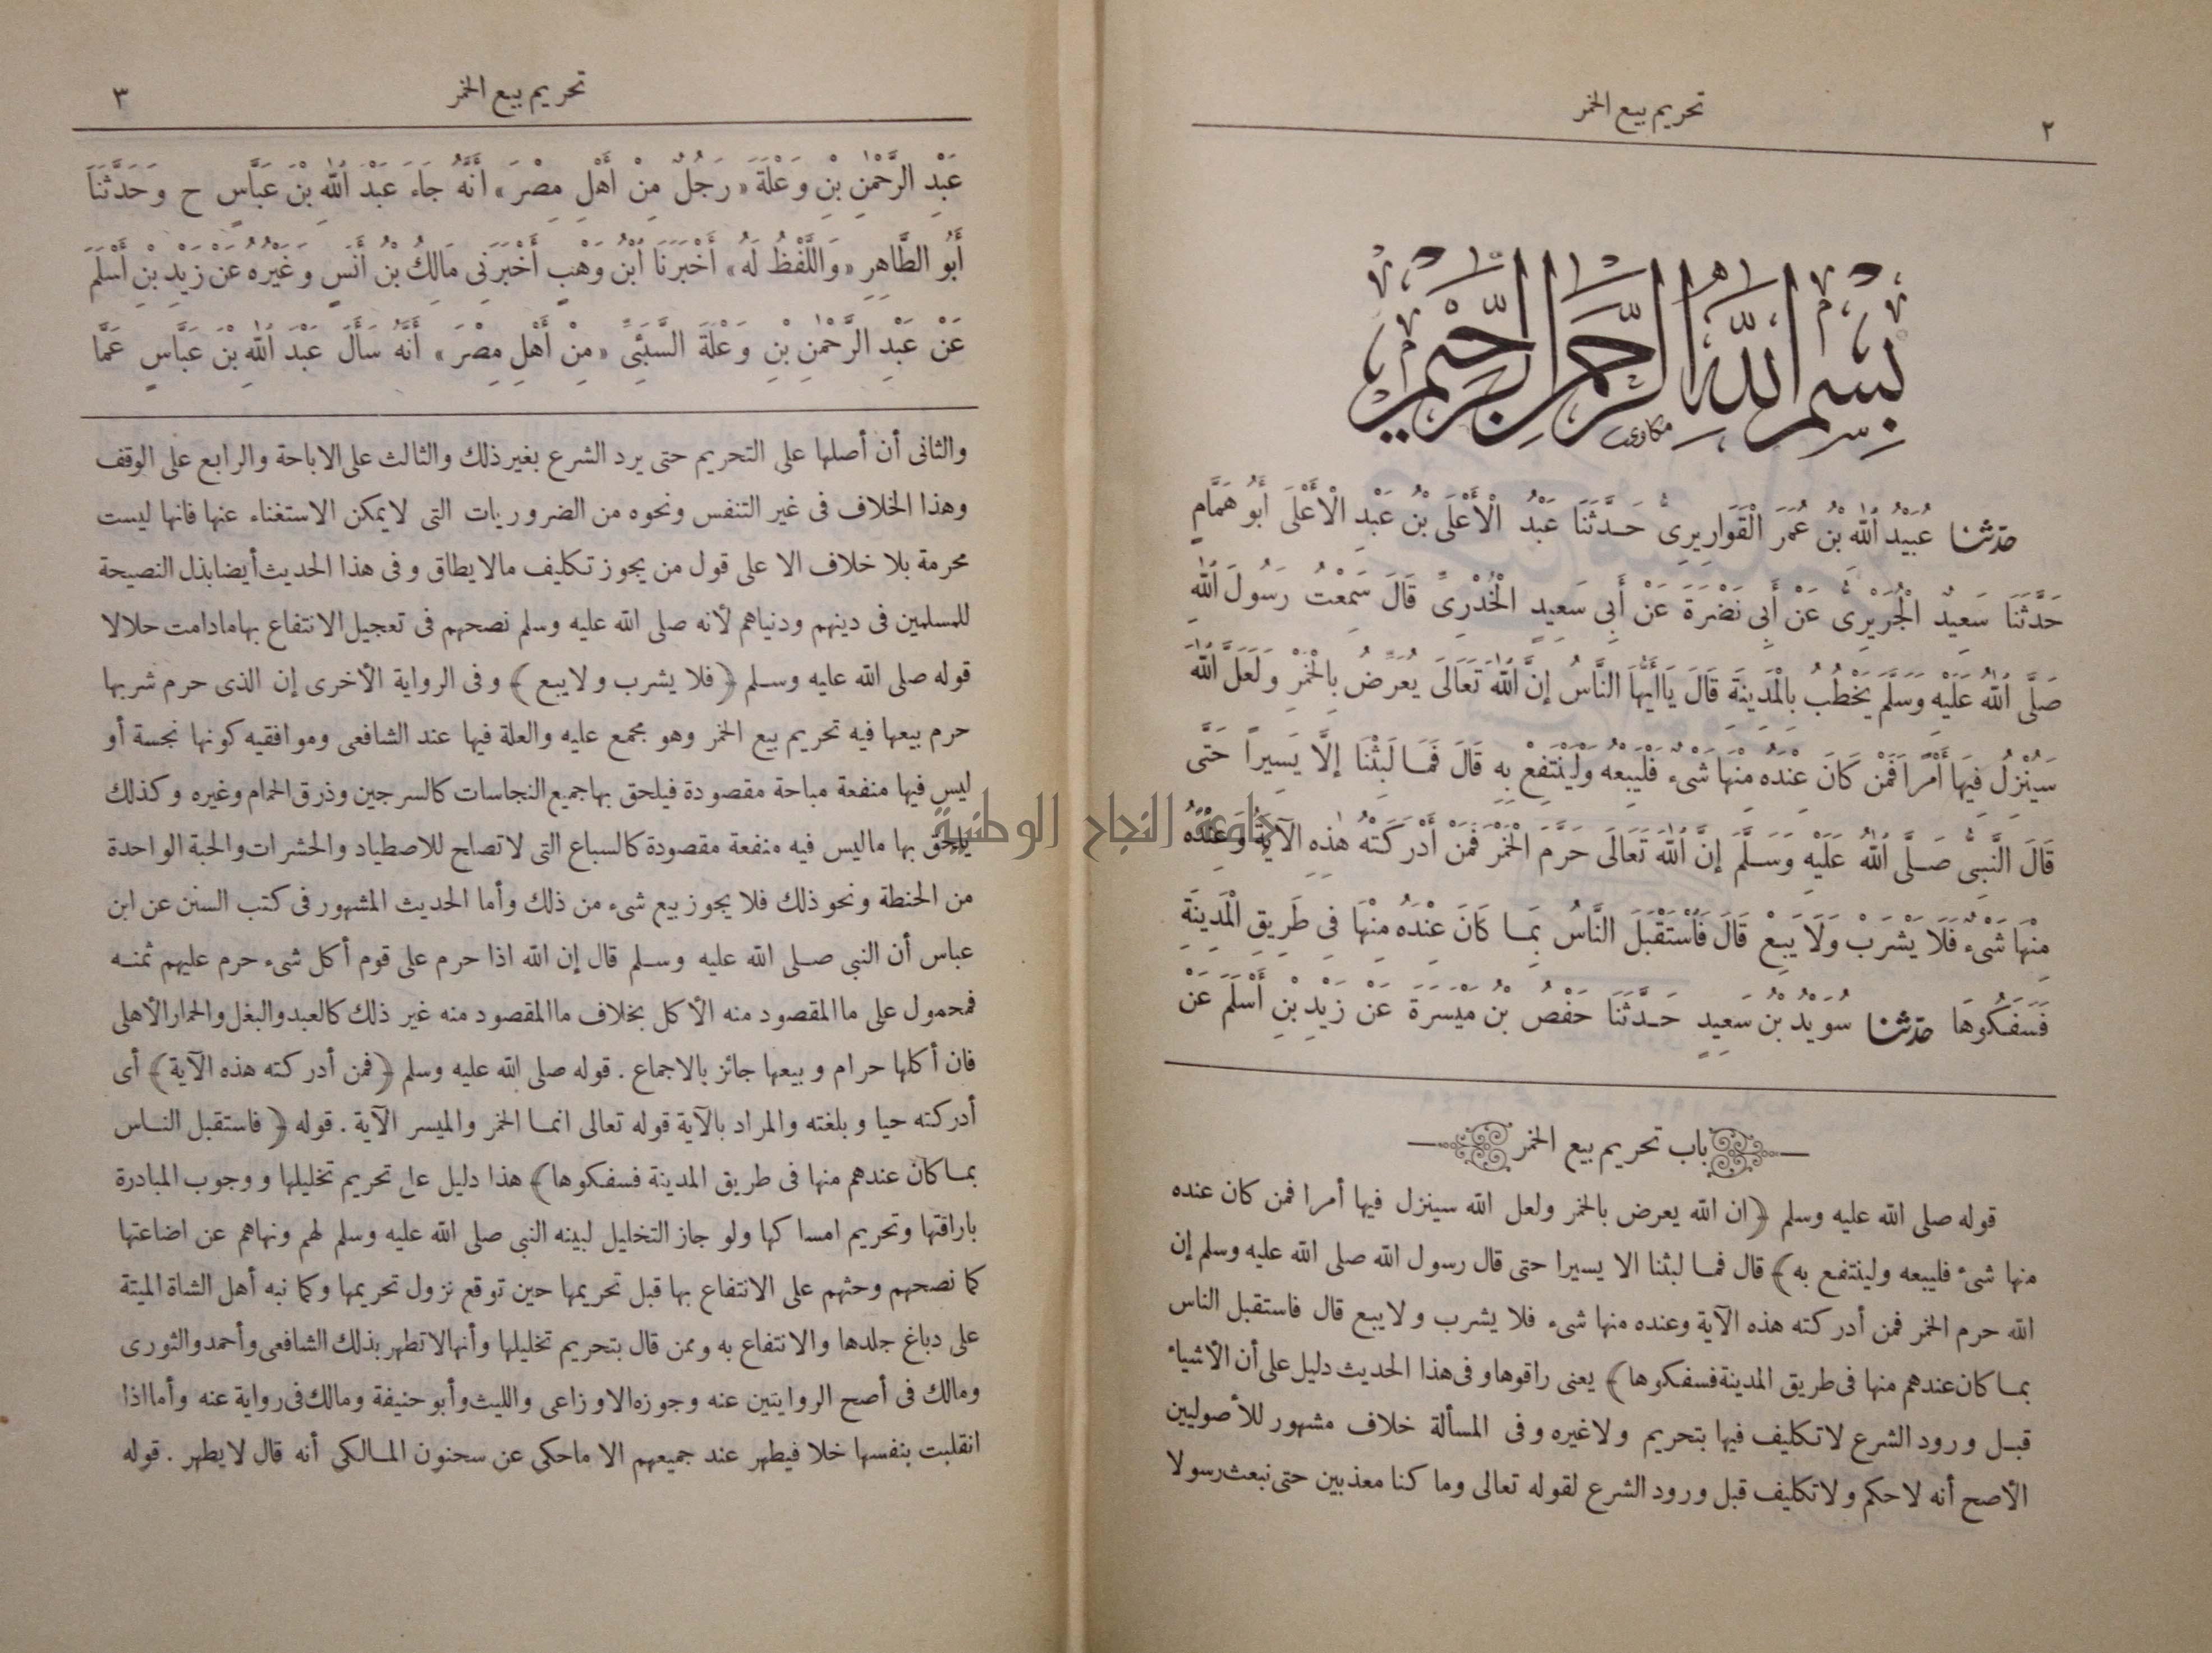 ٢
تحريم بيع الخمر
بِسْمِ اللهِ الرَّحْمٰنِ الرَّحِيمِ
حدثنا عُبَيْدُ اللهِ بْنُ عُمَرَ الْقَوَارِيرِىُّ حَدَّثَنَا عَبْدُ الْأَعْلَى بْنُ عَبْدِ الْأَعْلَى أَبُو هَمَّامٍ
حَدَّثَنَا سَعِيدٌ الْجُرَيْرِىُّ عَنْ أَبِى نَضْرَةَ عَنْ أَبِى سَعِيدٍ الْخُدْرِىِّ قَالَ سَمِعْتُ رَسُولَ اللهِ
صَلَّى اللهُ عَلَيْهِ وَسَلَّمَ يَخْطُبُ بِالْمَدِينَةِ قَالَ يَا أَيُّهَا النَّاسُ إِنَّ اللهَ تَعَالَى يُعَرِّضُ بِالْخَمْرِ وَلَعَلَّ اللهَ
سَيُنْزِلُ فِيهَا أَمْرًا فَمَنْ كَانَ عِنْدَهُ مِنْهَا شَىْءٌ فَلْيَبِعْهُ وَلْيَنْتَفِعْ بِهِ قَالَ فَمَا لَبِثْنَا إِلَّا يَسِيرًا حَتَّى
قَالَ النَّبِىُّ صَلَّى اللهُ عَلَيْهِ وَسَلَّمَ إِنَّ اللهَ تَعَالَى حَرَّمَ الْخَمْرَ فَمَنْ أَدْرَكَتْهُ هٰذِهِ الْآيَةُ وَعِنْدَهُ
مِنْهَا شَىْءٌ فَلَا يَشْرَبْ وَلَا يَبِعْ قَالَ فَاسْتَقْبَلَ النَّاسُ بِمَا كَانَ عِنْدَهُ مِنْهَا فِى طَرِيقِ الْمَدِينَةِ
فَسَفَكُوهَا حدثنا سُوَيْدُ بْنُ سَعِيدٍ حَدَّثَنَا حَفْصُ بْنُ مَيْسَرَةَ عَنْ زَيْدِ بْنِ أَسْلَمَ عَنْ
باب تحريم بيع الخمر
قوله صلى الله عليه وسلم ﴿ان الله يعرض بالخمر ولعل الله سينزل فيها أمرا فمن كان عنده
منها شىء فليبعه ولينتفع به﴾ قال فما لبثنا الا يسيرا حتى قال رسول الله صلى الله عليه وسلم إن
الله حرم الخمر فمن أدركته هذه الآية وعنده منها شىء فلا يشرب ولا يبع قال فاستقبل الناس
بما كان عندهم منها فى طريق المدينة فسفكوها﴾ يعنى راقوها وفى هذا الحديث دليل على أن الأشياء
قبل ورود الشرع لا تكليف فيها بتحريم ولا غيره وفى المسألة خلاف مشهور للأصوليين
الأصح أنه لا حكم ولا تكليف قبل ورود الشرع لقوله تعالى وما كنا معذبين حتى نبعث رسولا
تحريم بيع الخمر
٣
عَبْدِ الرَّحْمٰنِ بْنِ وَعْلَةَ «رَجُلٌ مِنْ أَهْلِ مِصْرَ» أَنَّهُ جَاءَ عَبْدَ اللهِ بْنَ عَبَّاسٍ ح وَحَدَّثَنَا
أَبُو الطَّاهِرِ «وَاللَّفْظُ لَهُ» أَخْبَرَنَا ابْنُ وَهْبٍ أَخْبَرَنِى مَالِكُ بْنُ أَنَسٍ وَغَيْرُهُ عَنْ زَيْدِ بْنِ أَسْلَمَ
عَنْ عَبْدِ الرَّحْمٰنِ بْنِ وَعْلَةَ السَّبَئِىِّ «مِنْ أَهْلِ مِصْرَ» أَنَّهُ سَأَلَ عَبْدَ اللهِ بْنَ عَبَّاسٍ عَمَّا
والثانى أن أصلها على التحريم حتى يرد الشرع بغير ذلك والثالث على الاباحة والرابع على الوقف
وهذا الخلاف فى غير التنفس ونحوه من الضروريات التى لا يمكن الاستغناء عنها فانها ليست
محرمة بلا خلاف الا على قول من يجوز تكليف مالا يطاق وفى هذا الحديث أيضا بذل النصيحة
للمسلمين فى دينهم ودنياهم لأنه صلى الله عليه وسلم نصحهم فى تعجيل الانتفاع بها مادامت حلالا
قوله صلى الله عليه وسلم ﴿فلا يشرب ولا يبع﴾ وفى الرواية الأخرى إن الذى حرم شربها
حرم بيعها فيه تحريم بيع الخمر وهو مجمع عليه والعلة فيها عند الشافعى وموافقيه كونها نجسة أو
ليس فيها منفعة مباحة مقصودة فيلحق بها جميع النجاسات كالسرجين وذرق الحمام وغيره وكذلك
يلحق بها ماليس فيه منفعة مقصودة كالسباع التى لا تصلح للاصطياد والحشرات والحبة الواحدة
من الحنطة ونحو ذلك فلا يجوز بيع شىء من ذلك وأما الحديث المشهور فى كتب السنن عن ابن
عباس أن النبى صلى الله عليه وسلم قال إن الله اذا حرم على قوم أكل شىء حرم عليهم ثمنه
فمحمول على ما المقصود منه الأكل بخلاف ما المقصود منه غير ذلك كالعبد والبغل والحمار الأهلى
فان أكلها حرام وبيعها جائز بالاجماع . قوله صلى الله عليه وسلم ﴿فمن أدركته هذه الآية﴾ أى
أدركته حيا وبلغته والمراد بالآية قوله تعالى انما الخمر والميسر الآية . قوله ﴿فاستقبل الناس
بما كان عندهم منها فى طريق المدينة فسفكوها﴾ هذا دليل على تحريم تخليلها ووجوب المبادرة
باراقتها وتحريم امساكها ولو جاز التخليل لبينه النبى صلى الله عليه وسلم لهم ونهاهم عن اضاعتها
كما نصحهم وحثهم على الانتفاع بها قبل تحريمها حين توقع نزول تحريمها وكما نبه أهل الشاة الميتة
على دباغ جلدها والانتفاع به وممن قال بتحريم تخليلها وأنها لا تطهر بذلك الشافعى وأحمد والثورى
ومالك فى أصح الروايتين عنه وجوزه الاوزاعى والليث وأبو حنيفة ومالك فى رواية عنه وأما اذا
انقلبت بنفسها خلا فيطهر عند جميعهم الا ماحكى عن سحنون المالكى أنه قال لا يطهر . قوله
جامعة النجاح الوطنية